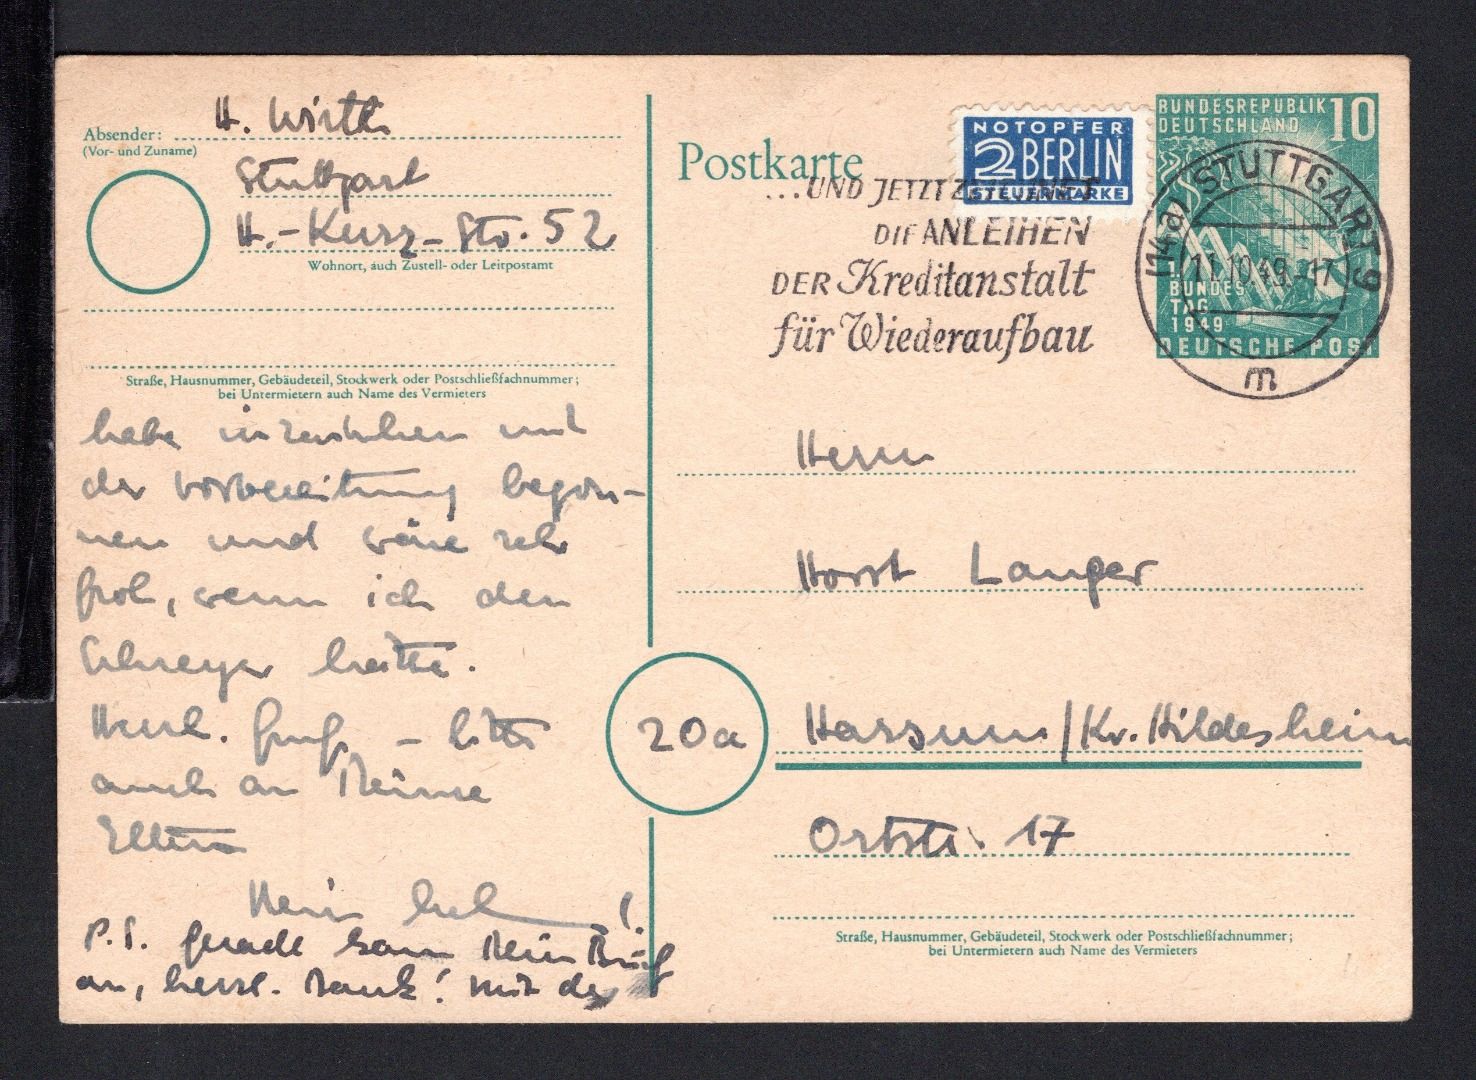 H. Wirth
Absender:
(Vor- und Zuname)
Stuttgart
H.-Kurz-Str. 52
Wohnort, auch Zustell- oder Leitpostamt
Straße, Hausnummer, Gebäudeteil, Stockwerk oder Postschließfachnummer;
bei Untermietern auch Name des Vermieters
habe inzwischen mit
der Vorbereitung begon-
nen und wäre sehr
froh, wenn ich den
hätte.
Herzl. Gruß – bitte
auch an Deine
Eltern
Dein
P.S. gerade kam Dein Brief
an, herzl. Dank! Mit
Postkarte
NOTOPFER
2 BERLIN
STEUERMARKE
...UND JETZT ZEICHNET
DIE ANLEIHEN
DER Kreditanstalt
für Wiederaufbau
BUNDESREPUBLIK 10
DEUTSCHLAND
BUNDES
TAG
1949
DEUTSCHE POST
(14a) STUTTGART 9
11.10.49.-17
m
Herrn
Horst Langer
20a
Hassum/Kr. Hildesheim
Ortstr. 17
Straße, Hausnummer, Gebäudeteil, Stockwerk oder Postschließfachnummer;
bei Untermietern auch Name des Vermieters